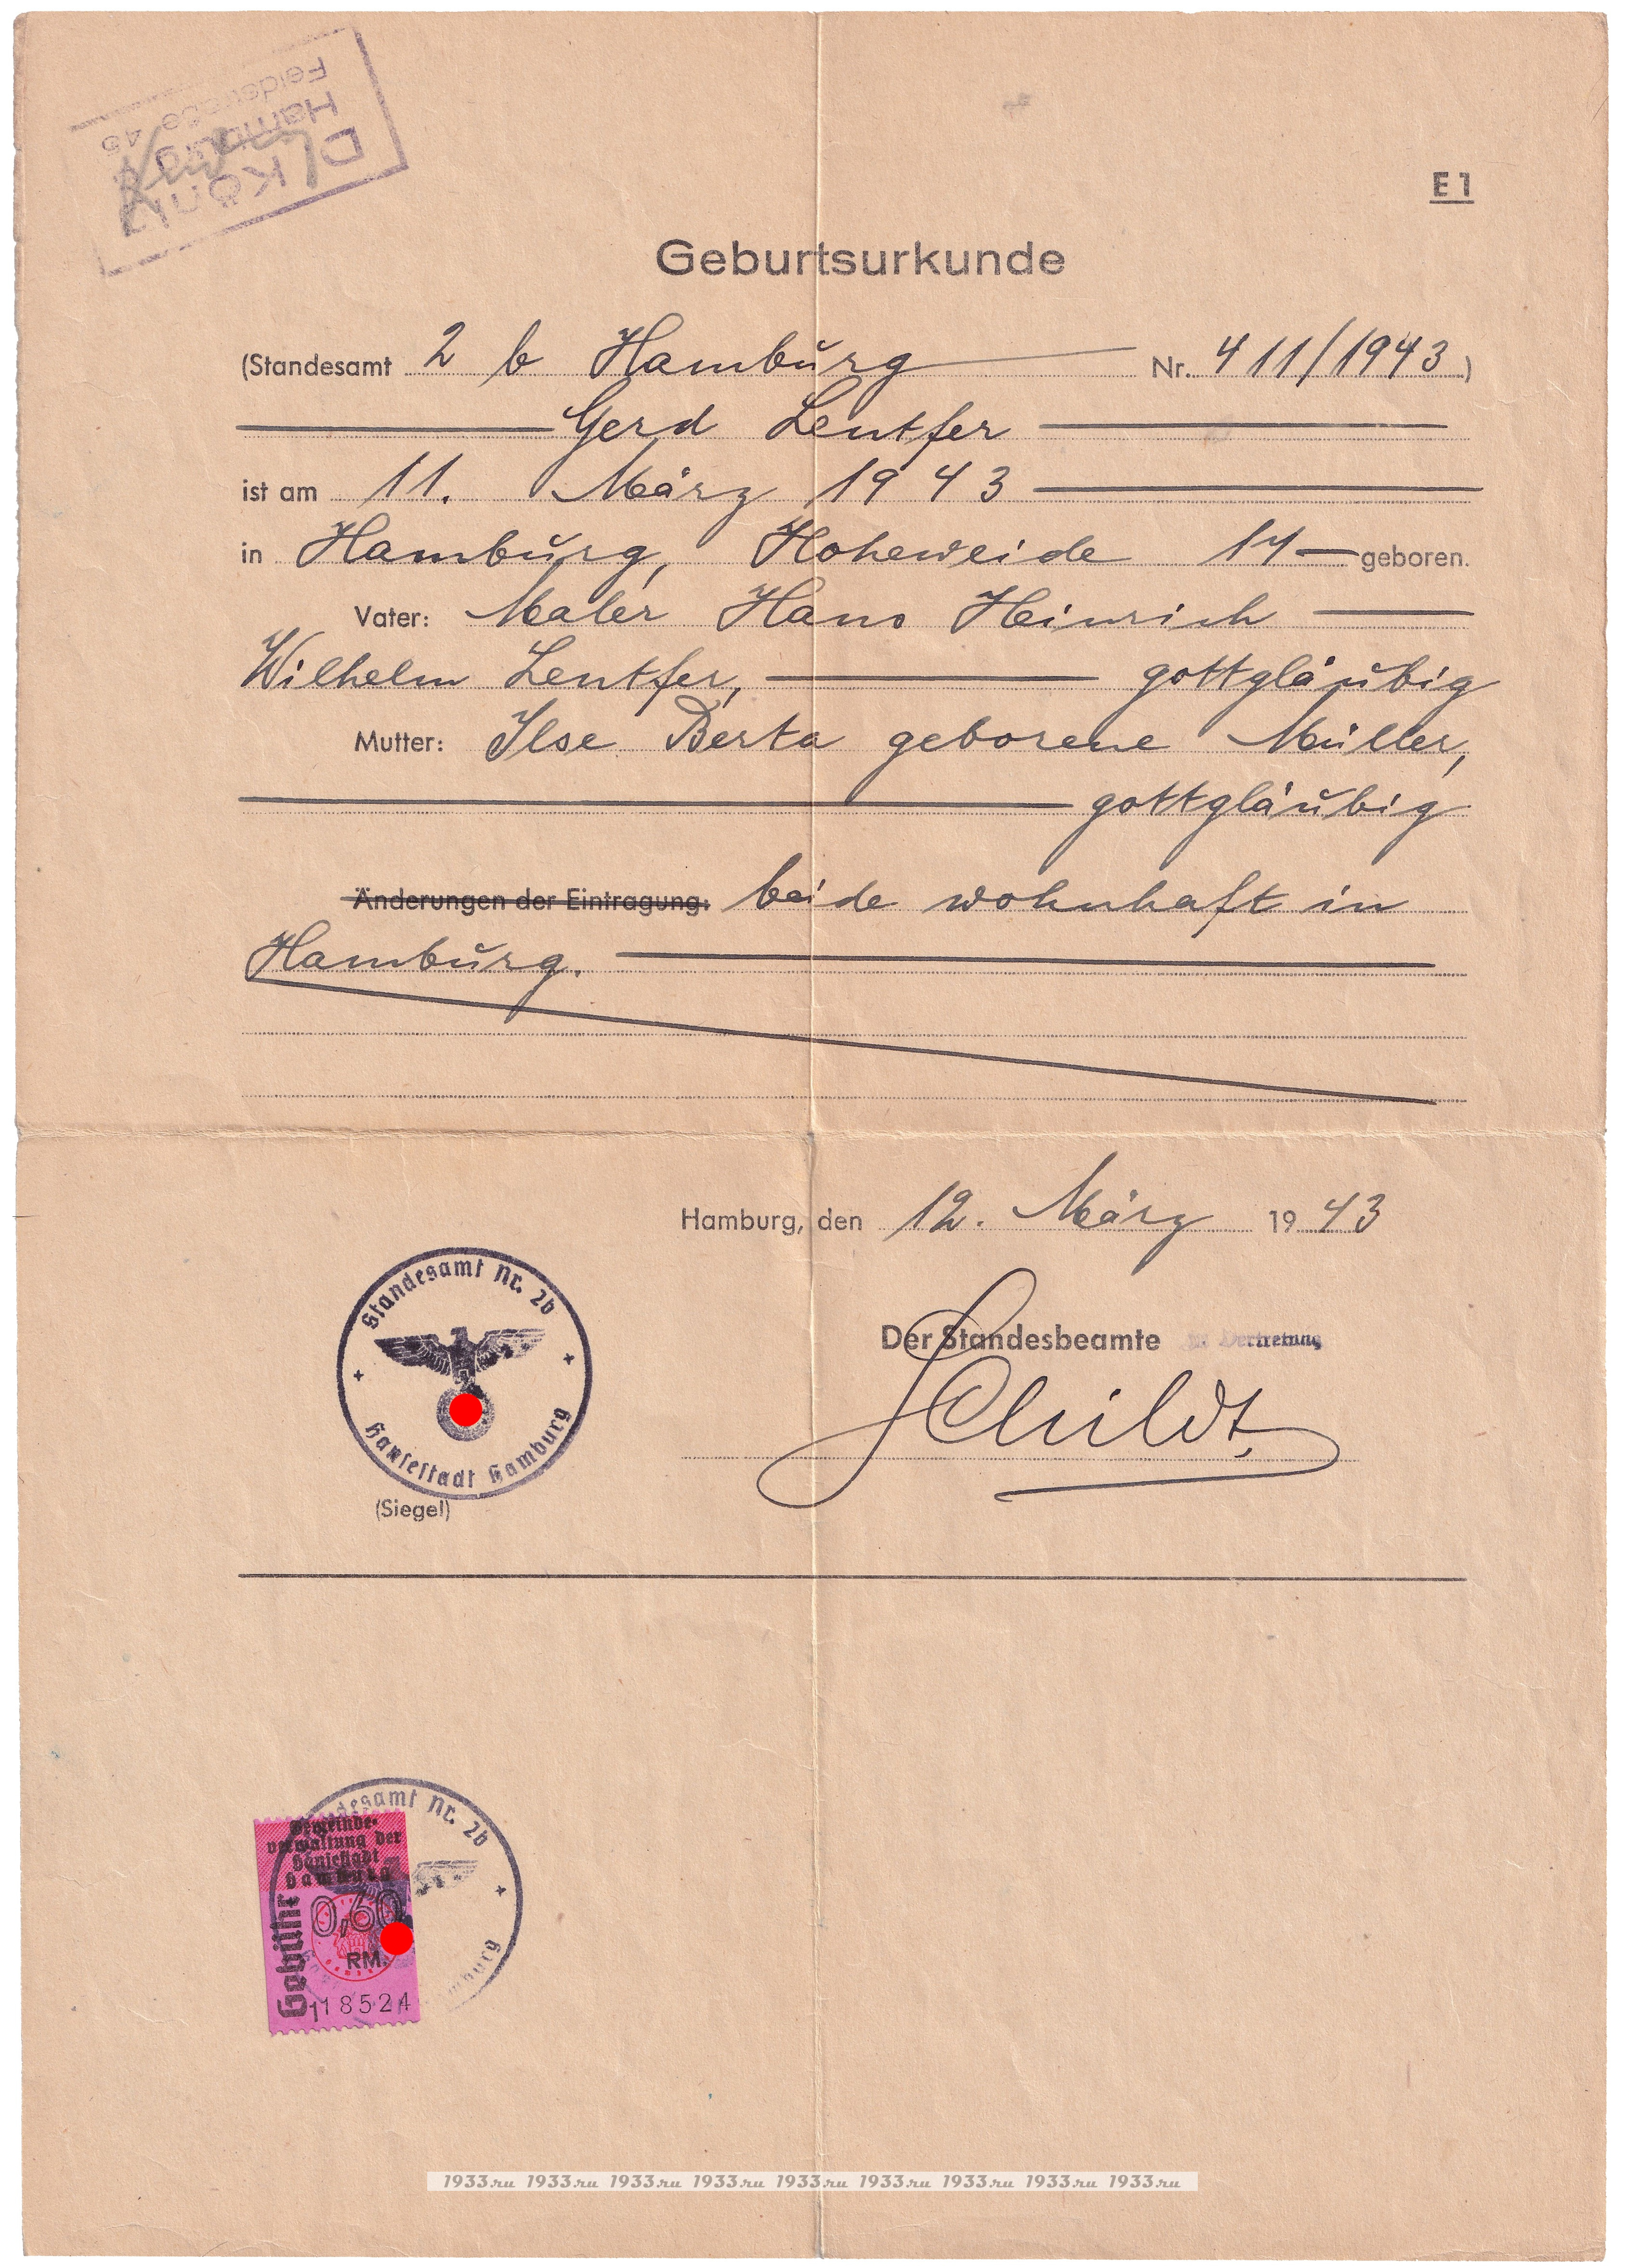 König
Hamburg
Feldstraße 45
E 1
Geburtsurkunde
(Standesamt 2 b Hamburg Nr. 411/1943)
Gerd Lentfer
ist am 11. März 1943
in Hamburg, Hoheweide 17 geboren.
Vater: Maler Hans Heinrich
Wilhelm Lentfer, gottgläubig
Mutter: Ilse Berta geborene Müller,
gottgläubig
Änderungen der Eintragung: beide wohnhaft in
Hamburg.
Hamburg, den 12. März 1943
Standesamt Nr. 2b
Hansestadt Hamburg
(Siegel)
Der Standesbeamte
In Vertretung
Schildt
Standesamt Nr. 2b
Gemeinde-
verwaltung der
Hansestadt
Hamburg
0,60
RM.
Gebühr
118524
1933.ru 1933.ru 1933.ru 1933.ru 1933.ru 1933.ru 1933.ru 1933.ru 1933.ru